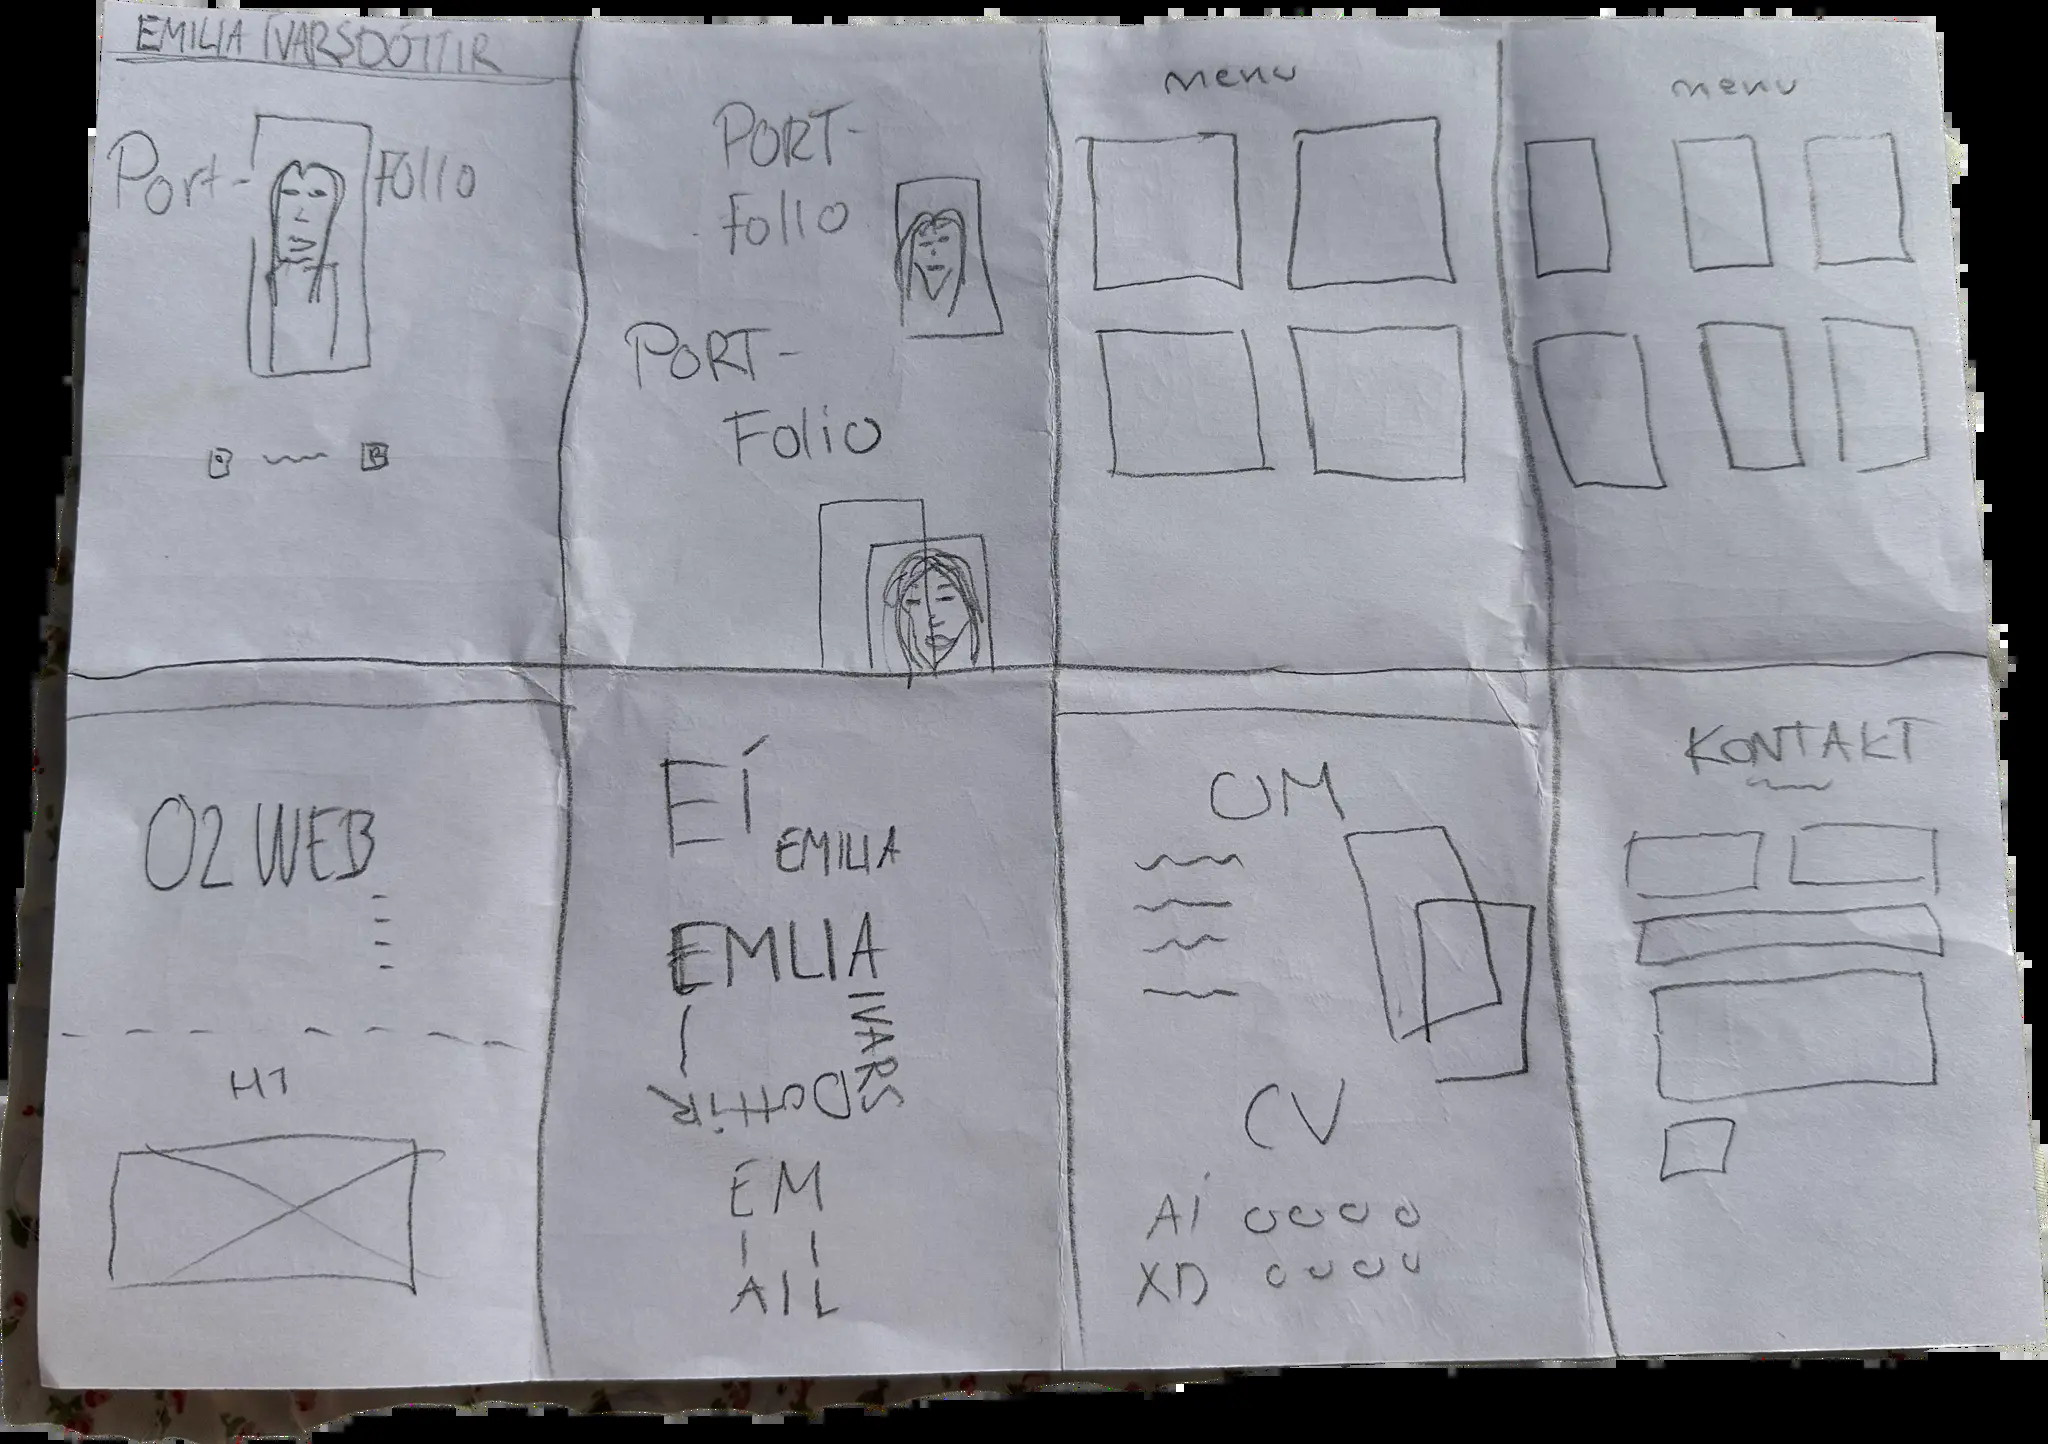 EMILIA ÍVARSDÓTTIR
Port-
Folio
PORT-
Folio
PORT-
Folio
menu
menu
02 WEB
H1
EÍ
EMILIA
EMLIA
ÍVARS
DOTTIR
EM
I I
AIL
OM
CV
AI
XD
KONTAKT